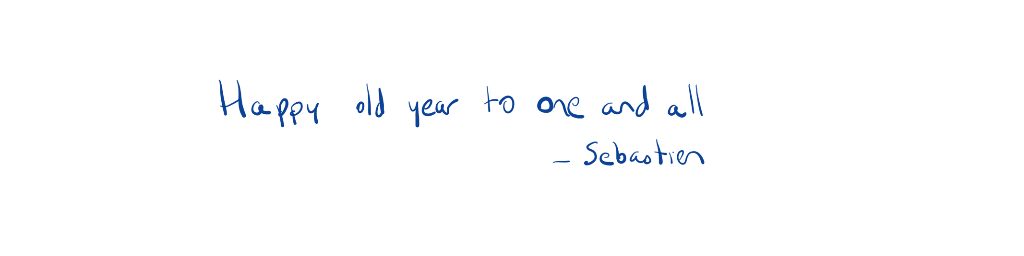 Happy old year to one and all
- Sebastien